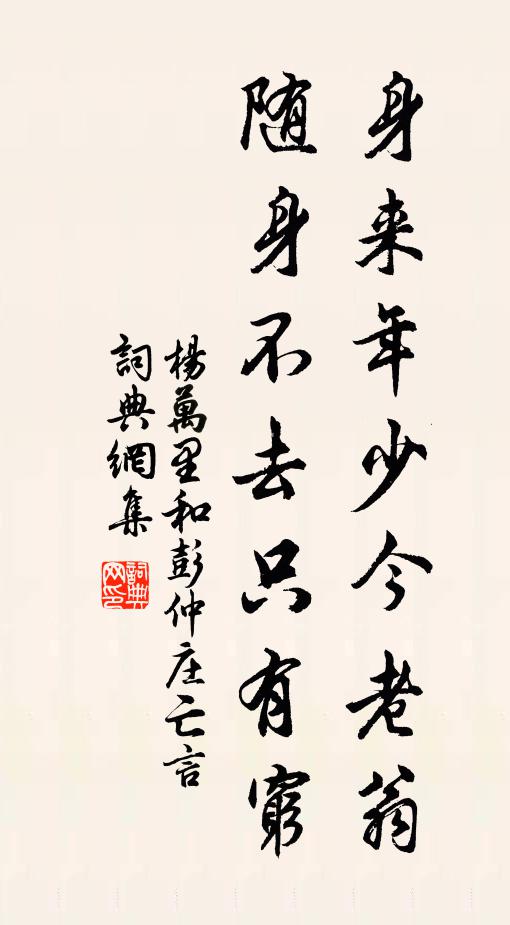 身来年少今老翁
随身不去只有窮
楊萬里和彭仲庄亡言
詞典網集
詞典
网印